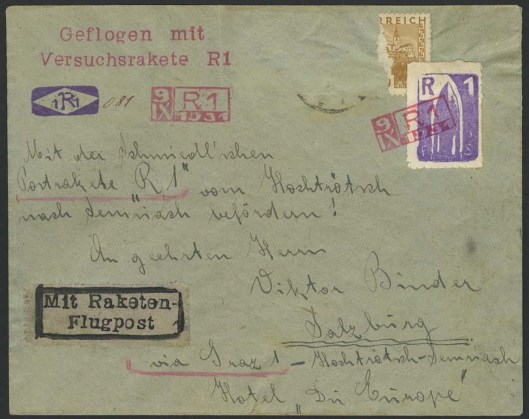 Geflogen mit
Versuchsrakete R1
RREICH
R 1
1R1 081
9 R1
IX 1931
9 R1
IX 1931
Mit der Schmiedl'schen
Postrakete "R 1" vom Hochtrötsch
nach Semriach befördern!
An geehrten Herrn
Viktor Binder
Salzburg
via Graz 1 - Hochtrötsch-Semriach
Hotel "De Europe"
Mit Raketen-
Flugpost